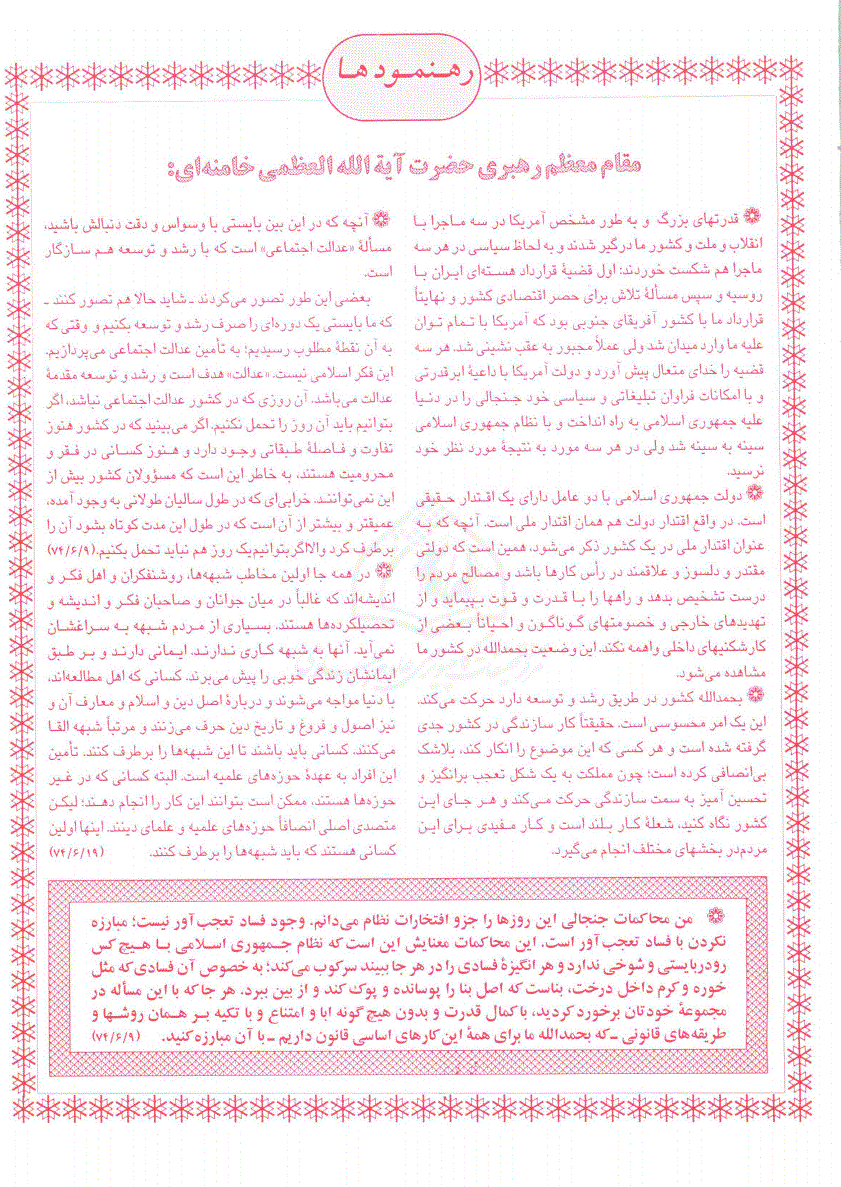 رهنمودها
مقام معظم رهبری حضرت آیة الله العظمی خامنه‌ای:
❁ قدرتهای بزرگ و به طور مشخص آمریکا در سه ماجرا با
انقلاب و ملت و کشور ما درگیر شدند و به لحاظ سیاسی در هر سه
ماجرا هم شکست خوردند: اول قضیهٔ قرارداد هسته‌ای ایران با
روسیه و سپس مسألهٔ تلاش برای حصر اقتصادی کشور و نهایتاً
قرارداد ما با کشور آفریقای جنوبی بود که آمریکا با تمام توان
علیه ما وارد میدان شد ولی عملاً مجبور به عقب نشینی شد. هر سه
قضیه را خدای متعال پیش آورد و دولت آمریکا با داعیهٔ ابرقدرتی
و با امکانات فراوان تبلیغاتی و سیاسی خود جنجالی را در دنیا
علیه جمهوری اسلامی به راه انداخت و با نظام جمهوری اسلامی
سینه به سینه شد ولی در هر سه مورد به نتیجهٔ مورد نظر خود
نرسید.
❁ دولت جمهوری اسلامی با دو عامل دارای یک اقتدار حقیقی
است. در واقع اقتدار دولت هم همان اقتدار ملی است. آنچه که به
عنوان اقتدار ملی در یک کشور ذکر می‌شود، همین است که دولتی
مقتدر و دلسوز و علاقمند در رأس کارها باشد و مصالح مردم را
درست تشخیص بدهد و راهها را با قدرت و قوت بپیماید و از
تهدیدهای خارجی و خصومتهای گوناگون و احیاناً بعضی از
کارشکنیهای داخلی واهمه نکند. این وضعیت بحمدالله در کشور ما
مشاهده می‌شود.
❁ بحمدالله کشور در طریق رشد و توسعه دارد حرکت می‌کند.
این یک امر محسوسی است. حقیقتاً کار سازندگی در کشور جدی
گرفته شده است و هر کسی که این موضوع را انکار کند، بلاشک
بی‌انصافی کرده است؛ چون مملکت به یک شکل تعجب برانگیز و
تحسین آمیز به سمت سازندگی حرکت می‌کند و هر جای این
کشور نگاه کنید، شعلهٔ کار بلند است و کار مفیدی برای این
مردم‌در بخشهای مختلف انجام می‌گیرد.
❁ آنچه که در این بین بایستی با وسواس و دقت دنبالش باشید،
مسألهٔ «عدالت اجتماعی» است که با رشد و توسعه هم سازگار
است.
بعضی این طور تصور می‌کردند ـ شاید حالا هم تصور کنند ـ
که ما بایستی یک دوره‌ای را صرف رشد و توسعه بکنیم و وقتی که
به آن نقطهٔ مطلوب رسیدیم؛ به تأمین عدالت اجتماعی می‌پردازیم.
این فکر اسلامی نیست. «عدالت» هدف است و رشد و توسعه مقدمهٔ
عدالت می‌باشد. آن روزی که در کشور عدالت اجتماعی نباشد، اگر
بتوانیم باید آن روز را تحمل نکنیم. اگر می‌بینید که در کشور هنوز
تفاوت و فاصلهٔ طبقاتی وجود دارد و هنوز کسانی در فقر و
محرومیت هستند، به خاطر این است که مسؤولان کشور بیش از
این نمی‌توانند. خرابی‌ای که در طول سالیان طولانی به وجود آمده،
عمیقتر و بیشتر از آن است که در طول این مدت کوتاه بشود آن را
برطرف کرد والااگربتوانیم‌یک روز هم نباید تحمل بکنیم.(۷۴/۶/۹)
❁ در همه جا اولین مخاطب شبهه‌ها، روشنفکران و اهل فکر و
اندیشه‌اند که غالباً در میان جوانان و صاحبان فکر و اندیشه و
تحصیلکرده‌ها هستند. بسیاری از مردم شبهه به سراغشان
نمی‌آید. آنها به شبهه کاری ندارند. ایمانی دارند و بر طبق
ایمانشان زندگی خوبی را پیش می‌برند. کسانی که اهل مطالعه‌اند،
با دنیا مواجه می‌شوند و دربارهٔ اصل دین و اسلام و معارف آن و
نیز اصول و فروغ و تاریخ دین حرف می‌زنند و مرتباً شبهه القا
می‌کنند. کسانی باید باشند تا این شبهه‌ها را برطرف کنند. تأمین
این افراد به عهدهٔ حوزه‌های علمیه است. البته کسانی که در غیر
حوزه‌ها هستند، ممکن است بتوانند این کار را انجام دهند؛ لیکن
متصدی اصلی انصافاً حوزه‌های علمیه و علمای دینند. اینها اولین
کسانی هستند که باید شبهه‌ها را برطرف کنند. (۷۴/۶/۱۹)
❁ من محاکمات جنجالی این روزها را جزو افتخارات نظام می‌دانم. وجود فساد تعجب‌آور نیست؛ مبارزه
نکردن با فساد تعجب‌آور است. این محاکمات معنایش این است که نظام جمهوری اسلامی با هیچ کس
رودربایستی و شوخی ندارد و هر انگیزهٔ فسادی را در هر جا ببیند سرکوب می‌کند؛ به خصوص آن فسادی که مثل
خوره و کرم داخل درخت، بناست که اصل بنا را پوسانده و پوک کند و از بین ببرد. هر جا که با این مسأله در
مجموعهٔ خودتان برخورد کردید، با کمال قدرت و بدون هیچ گونه ابا و امتناع و با تکیه بر همان روشها و
طریقه‌های قانونی ـ که بحمدالله ما برای همهٔ این کارهای اساسی قانون داریم ـ با آن مبارزه کنید. (۷۴/۶/۹)